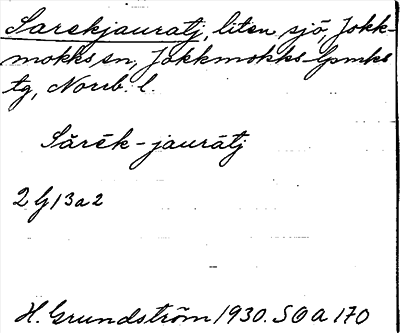 Sarekjauratj, liten sjö, Jokk-
mokks sn, Jokkmokks-Lpmks
tg, Norrb. l.
Sărēk-jaurātj
2 G 13 a 2
H. Grundström 1930. SOA 170